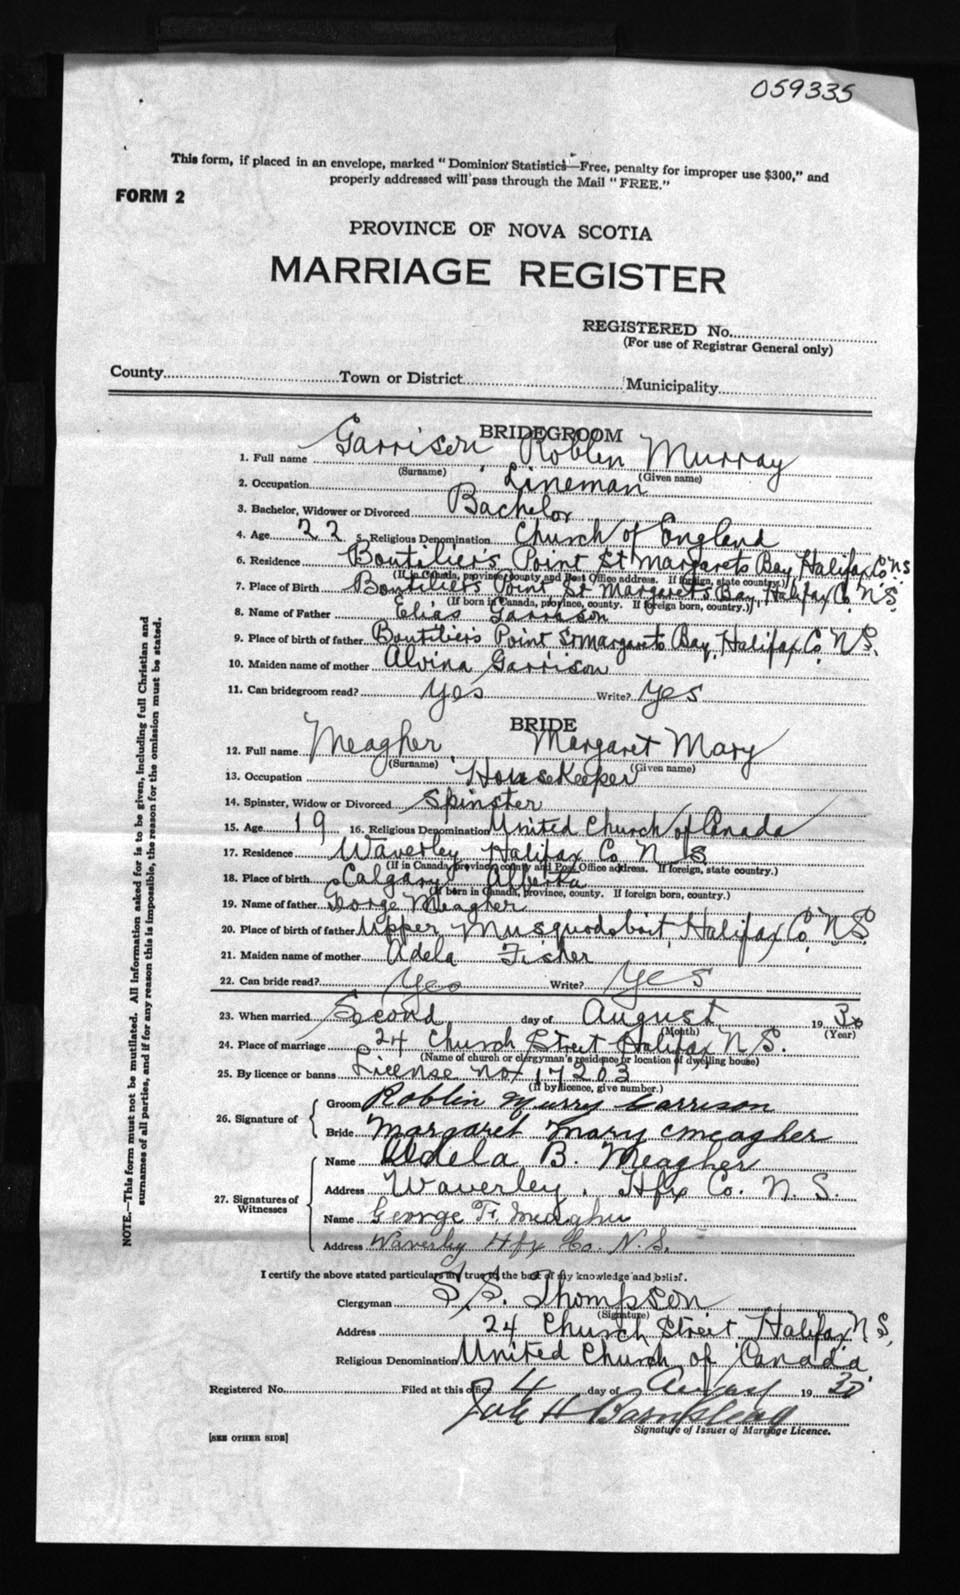 059335
This form, if placed in an envelope, marked "Dominion Statistics—Free, penalty for improper use $300," and
properly addressed will pass through the Mail "FREE."
FORM 2
PROVINCE OF NOVA SCOTIA
MARRIAGE REGISTER
REGISTERED No.
(For use of Registrar General only)
County Town or District Municipality
BRIDEGROOM
1. Full name Garrison Roblin Murray
(Surname) (Given name)
2. Occupation Lineman
3. Bachelor, Widower or Divorced Bachelor
4. Age 22 5. Religious Denomination Church of England
6. Residence Boutilier's Point St Margarets Bay, Halifax Co N S
(If in Canada, province, county and Post Office address. If foreign, state country.)
7. Place of Birth Boutiliers Point St Margarets Bay, Halifax Co. N.S.
(If born in Canada, province, county. If foreign born, country.)
8. Name of Father Elias Garrison
9. Place of birth of father Boutiliers Point St Margarets Bay, Halifax Co N.S.
10. Maiden name of mother Alvina Garrison
11. Can bridegroom read? Yes Write? Yes
BRIDE
12. Full name Meagher, Margaret Mary
(Surname) (Given name)
13. Occupation Housekeeper
14. Spinster, Widow or Divorced Spinster
15. Age 19 16. Religious Denomination United Church of Canada
17. Residence Waverley Halifax Co N S
(If in Canada, province, county and Post Office address. If foreign, state country.)
18. Place of birth Calgary Alberta
(If born in Canada, province, county. If foreign born, country.)
19. Name of father George Meagher
20. Place of birth of father Upper Musquodoboit, Halifax Co N.S.
21. Maiden name of mother Adela Fisher
22. Can bride read? Yes Write? Yes
23. When married Second day of August 1930
(Month) (Year)
24. Place of marriage 24 Church Street Halifax N.S.
(Name of church or clergyman's residence or location of dwelling house)
25. By licence or banns License no 17203
(If by licence, give number.)
26. Signature of
Groom Roblin Murry Garrison
Bride Margaret Mary Meagher
27. Signatures of Witnesses
Name Adela B. Meagher
Address Waverley, Hfx Co. N.S.
Name George F. Meagher
Address Waverley Hfx Co. N.S.
I certify the above stated particulars are true to the best of my knowledge and belief.
Clergyman S.S. Thompson
(Signature)
Address 24 Church Street, Halifax N.S,
Religious Denomination United Church of Canada
Registered No. Filed at this office 4 day of August 1930
Signature of Issuer of Marriage Licence.
[SEE OTHER SIDE]
NOTE.—This form must not be mutilated. All information asked for is to be given, including full Christian and
surnames of all parties, and if for any reason this is impossible, the reason for the omission must be stated.